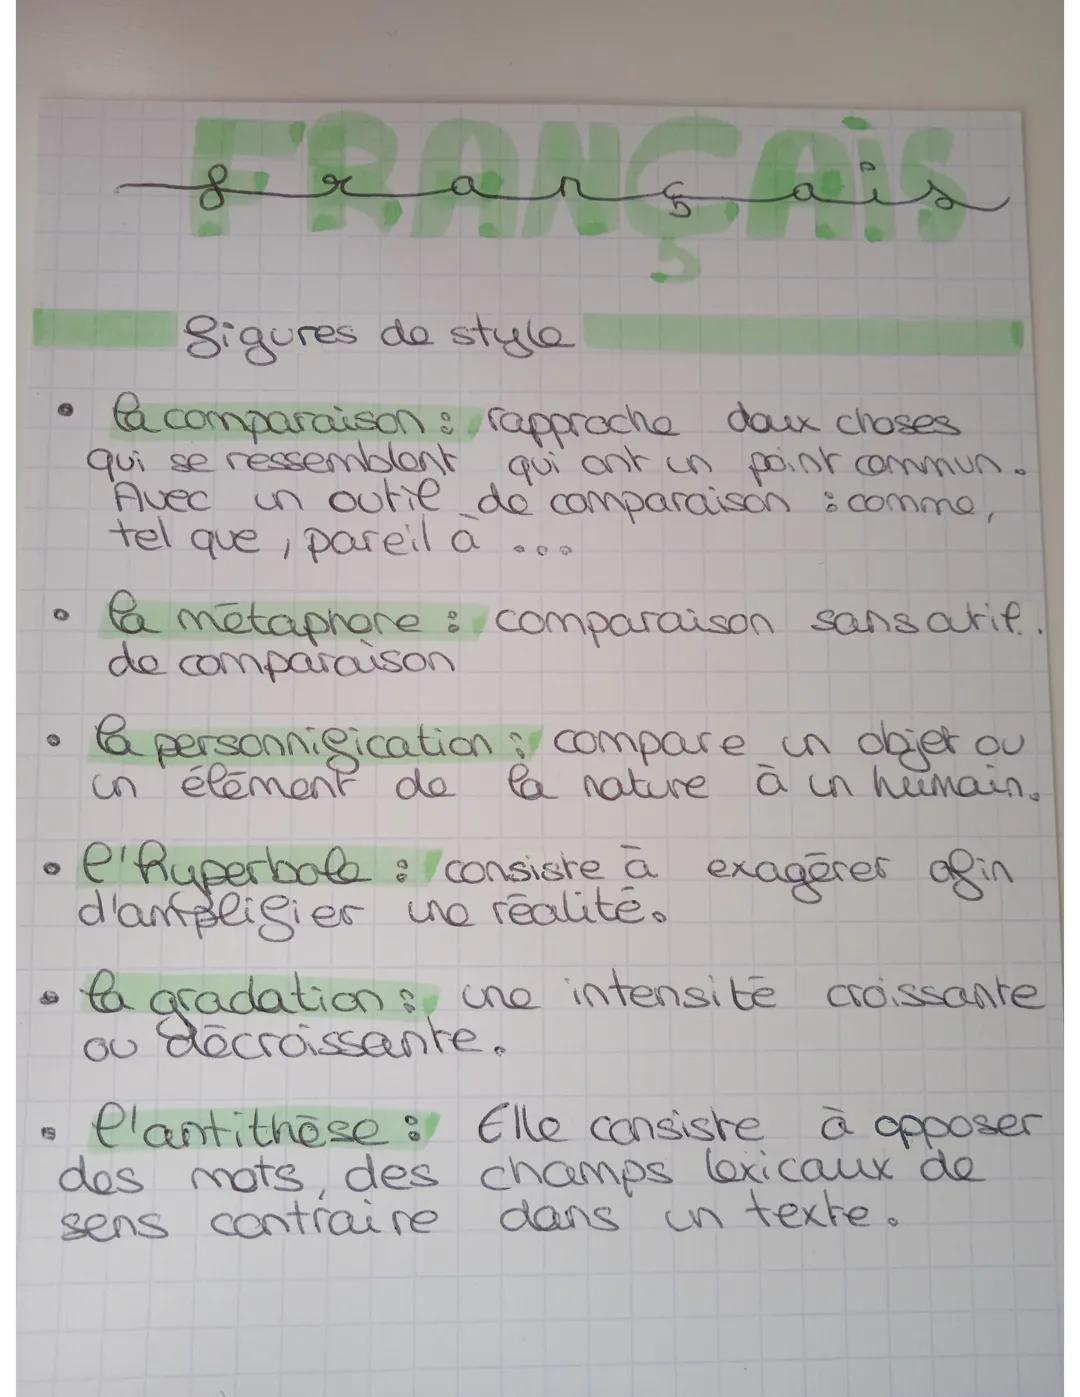 FRANÇAIS
français
figures de style
• la comparaison : rapproche deux choses
qui se ressemblent qui ont un point commun.
Avec un outil de comparaison : comme,
tel que, pareil à ...
• la métaphore : comparaison sans outil.
de comparaison
• la personnification : compare un objet ou
un élément de la nature à un humain.
• l'hyperbole : consiste à exagérer afin
d'amplifier une réalité.
• la gradation : une intensité croissante
ou décroissante.
• l'antithèse : Elle consiste à opposer
des mots, des champs lexicaux de
sens contraire dans un texte.